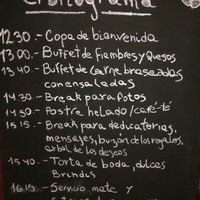 Cronograma
12:30.- Copa de bienvenida
13.00.- Buffet de Fiambres y Quesos
13.40 - Buffet de Carne braseadas
con ensaladas
14.30 - Break para Fotos
14.50 - Postre helado/café-té
15.15.- Break para dedicatorias,
mensajes, buzón de los regalos,
arbol de los deseos
15.40.- Torta de boda, dulces
Brindis
16.15 - Servicio mate y